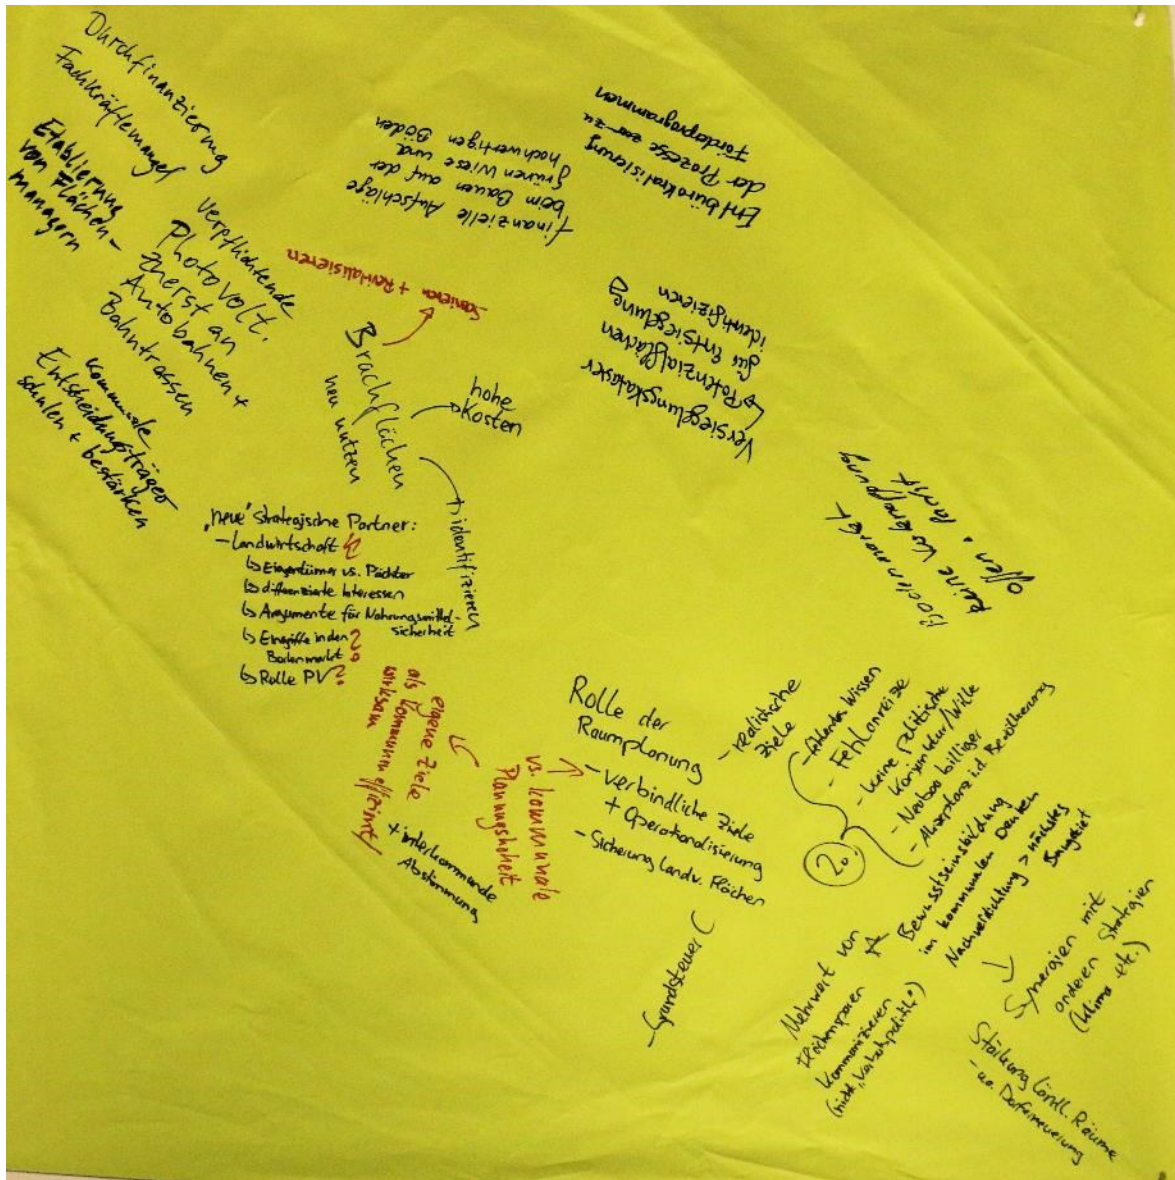 Durchfinanzierung
Fachkräftemangel
Etablierung
von Flächen-
managern
Verpflichtende
Photovolt.
zuerst an
Autobahnen +
Bahntrassen
kommunale
Entscheidungsträger
schulen + bestärken
finanzielle Aufschläge
beim Bauen auf der
grünen Wiese und
hochwertigen Böden
Entbürokratisierung
der Prozesse zu
Förderprogrammen
Sanieren + Revitalisieren
Brachflächen
neu nutzen
hohe
Kosten
identifizieren
Versiegelungskataster
↳ Potenzialflächen
für Entsiegelung
identifizieren
Bodenmarkt
keine
offen
"neue" strategische Partner:
- Landwirtschaft
↳ Eigentümer vs. Pächter
↳ differenzierte Interessen
↳ Argumente für Nahrungsmittel-
sicherheit
↳ Eingriffe in den ?
Bodenmarkt
↳ Rolle PV ?
eigene Ziele
als Kommunen effizient/
wirksam
vs. kommunale
Planungshoheit
+ interkommunale
Abstimmung
Rolle der
Raumplanung
- verbindliche Ziele
+ Operationalisierung
- Sicherung landw. Flächen
- realistische
Ziele
- Grundsteuer C
2.
- fehlendes Wissen
- Fehlanreize
- keine politische
Konjunktur/Wille
- Neubau billiger
- Akzeptanz i.d. Bevölkerung
Bewusstseinsbildung
im kommunalen Denken
Nachverdichtung > nächstes
Baugebiet
Mehrwert von
Flächensparen
kommunizieren
(nicht "Verbotspolitik")
Synergien mit
anderen Strategien
(Klima etc.)
Stärkung ländl. Räume
- u.a. Dorferneuerung